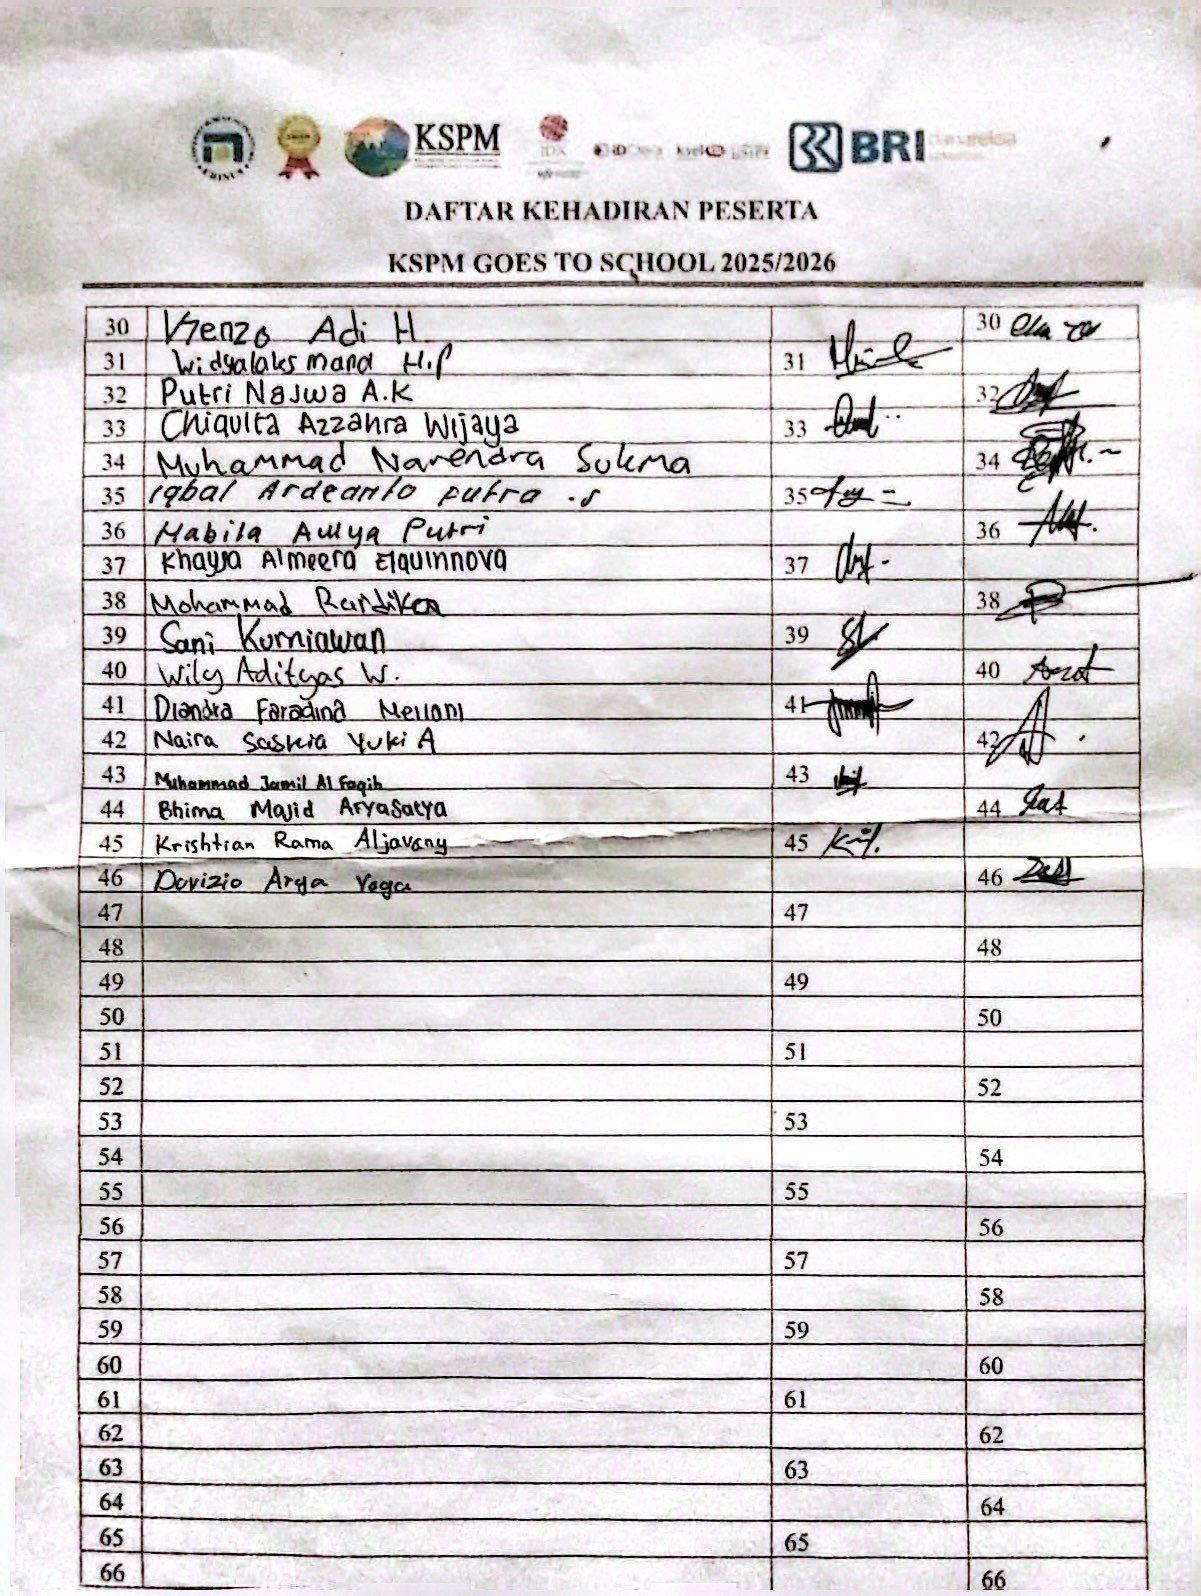 KSPM
IDX
BRI danareksa
DAFTAR KEHADIRAN PESERTA
KSPM GOES TO SCHOOL 2025/2026
30 Kenzo Adi H. 30
31 Widyalaksmana H.P 31
32 Putri Najwa A.K 32
33 Chiquita Azzahra Wijaya 33
34 Muhammad Narendra Sukma 34
35 Iqbal Ardeanto putra .s 35
36 Nabila Aulya Putri 36
37 Khaysa Almeera Elquinnova 37
38 Mohammad Raffdika 38
39 Sani Kurniawan 39
40 Wily Adityas W. 40
41 Diandra Faradina Meilani 41
42 Naira Saskia Yuki A 42
43 Muhammad Jamil Al Faqih 43
44 Bhima Majid Aryasatya 44
45 Krishtian Rama Aljavany 45
46 Davizio Arya Yoga 46
47 47
48 48
49 49
50 50
51 51
52 52
53 53
54 54
55 55
56 56
57 57
58 58
59 59
60 60
61 61
62 62
63 63
64 64
65 65
66 66